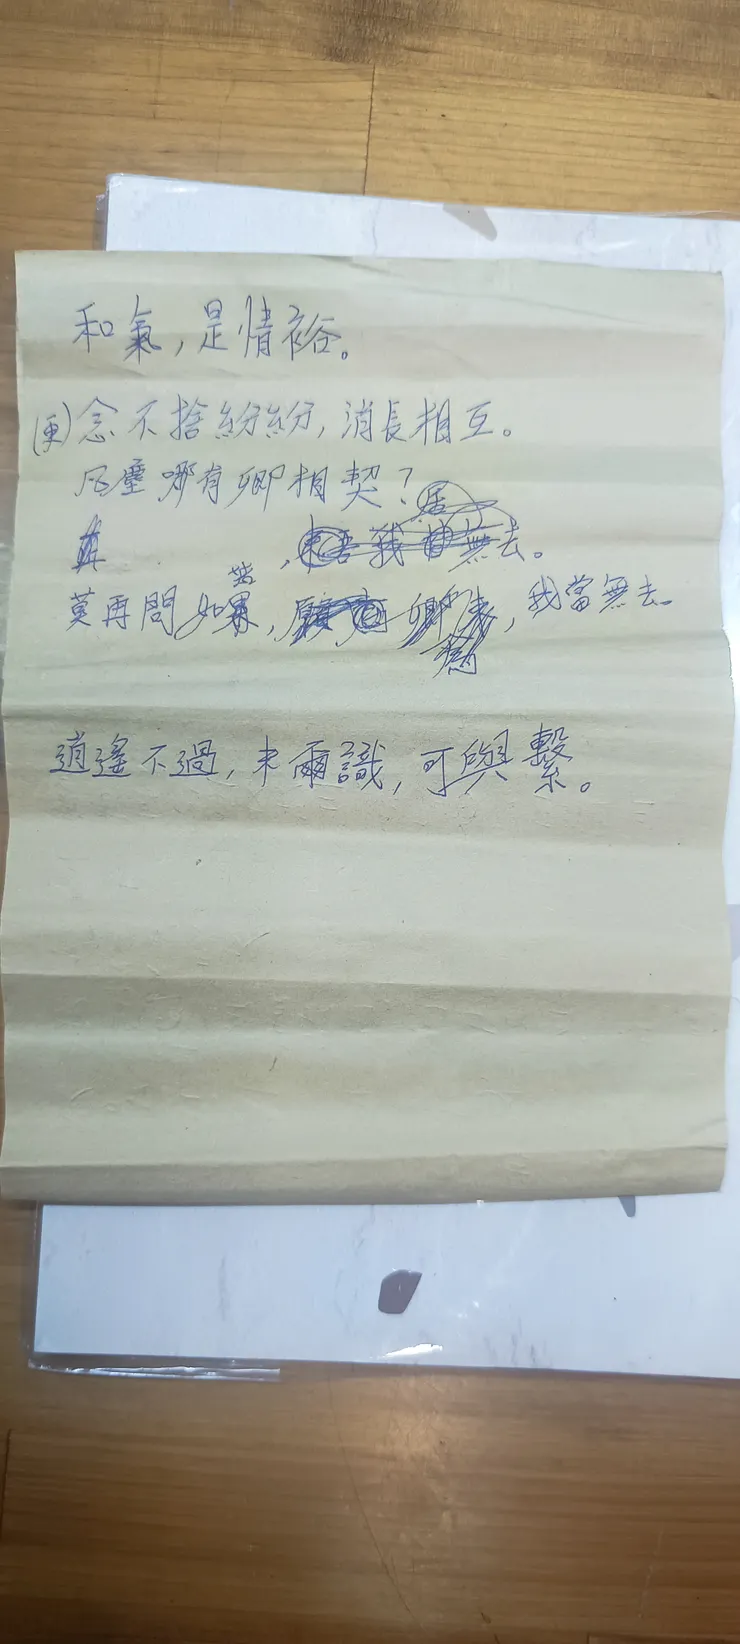 和氣，是情裕。
(更)念不捨紛紛，消長相互。
凡塵哪有卿相契？
，我無去。
莫再問如，我當無去。
逍遙不過，未爾識，可與繫。